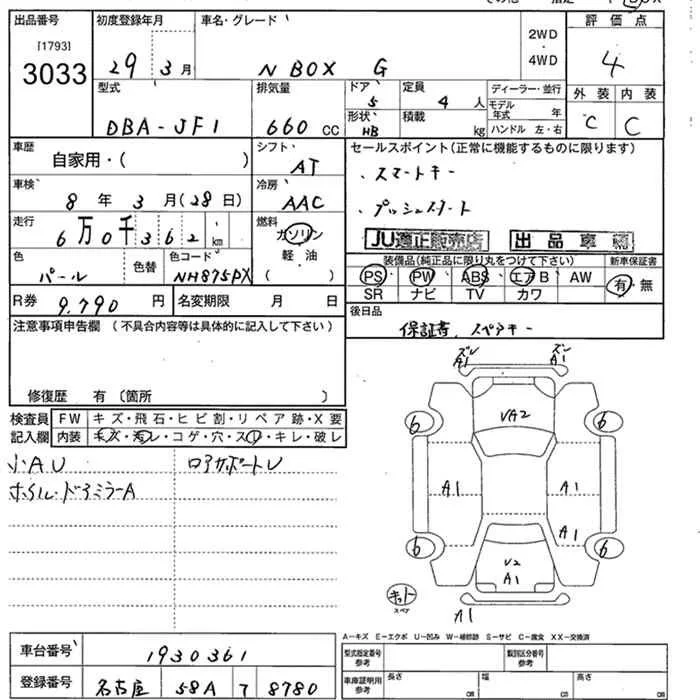 出品番号 初度登録年月 車名・グレード 2WD 評価点
[1793] 3033 29 3月 N BOX G ・4WD 4
型式 排気量 ドア 定員 ディーラー・並行 外装 内装
5 4人 モデル年式 年
DBA-JF1 660cc 形状 HB 積載 kg ハンドル 左・右 C C
車歴 自家用・( ) シフト AT セールスポイント(正常に機能するものに限ります)
車検 8年3月(28日) 冷房 AAC ・スマートキー
走行 6万0千362km 燃料 ガソリン ・プッシュスタート
軽油 JU適正販売店 出品車輌
色 パール 色替 色コード NH875PX ( ) 装備品(純正品に限り丸をつけて下さい) 新車保証書
PS PW ABS エアB AW 有・無
R券 9,790円 名変期限 月 日 SR ナビ TV カワ
注意事項申告欄(不具合内容等は具体的に記入して下さい) 後日品
保証書、スペアキー
修復歴 有(箇所 )
検査員 FW キズ・飛石・ヒビ割・リペア跡・X要
記入欄 内装 キズ・汚レ・コゲ・穴・スレ・キレ・破レ
小AU ロアサポートU
ホイル・ドアミラーA
ズレ A1 ズレ A1
VA2
6 6
A1 A1
A1
6 6
V2
A1
キット スペア
A1
A-キズ E-エクボ U-凹み W-補修跡 S-サビ C-腐食 XX-交換済
車台番号 1930361 型式指定番号 参考 類別区分番号 参考
登録番号 名古屋 58A ワ 8780 車庫証明用 参考 長さ cm 幅 cm 高さ cm